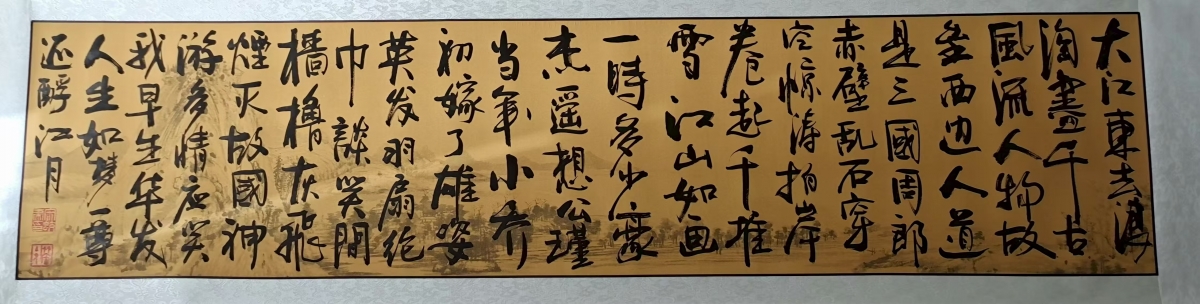 大江東去浪
淘盡千古
風流人物故
壘西边人道
是三國周郎
赤壁乱石穿
空惊涛拍岸
卷起千堆
雪江山如画
一時多少豪
杰遥想公瑾
当年小乔
初嫁了雄姿
英发羽扇纶
巾談笑間
檣櫓灰飛
煙灭故國神
游多情应笑
我早生华发
人生如梦一尊
还酹江月